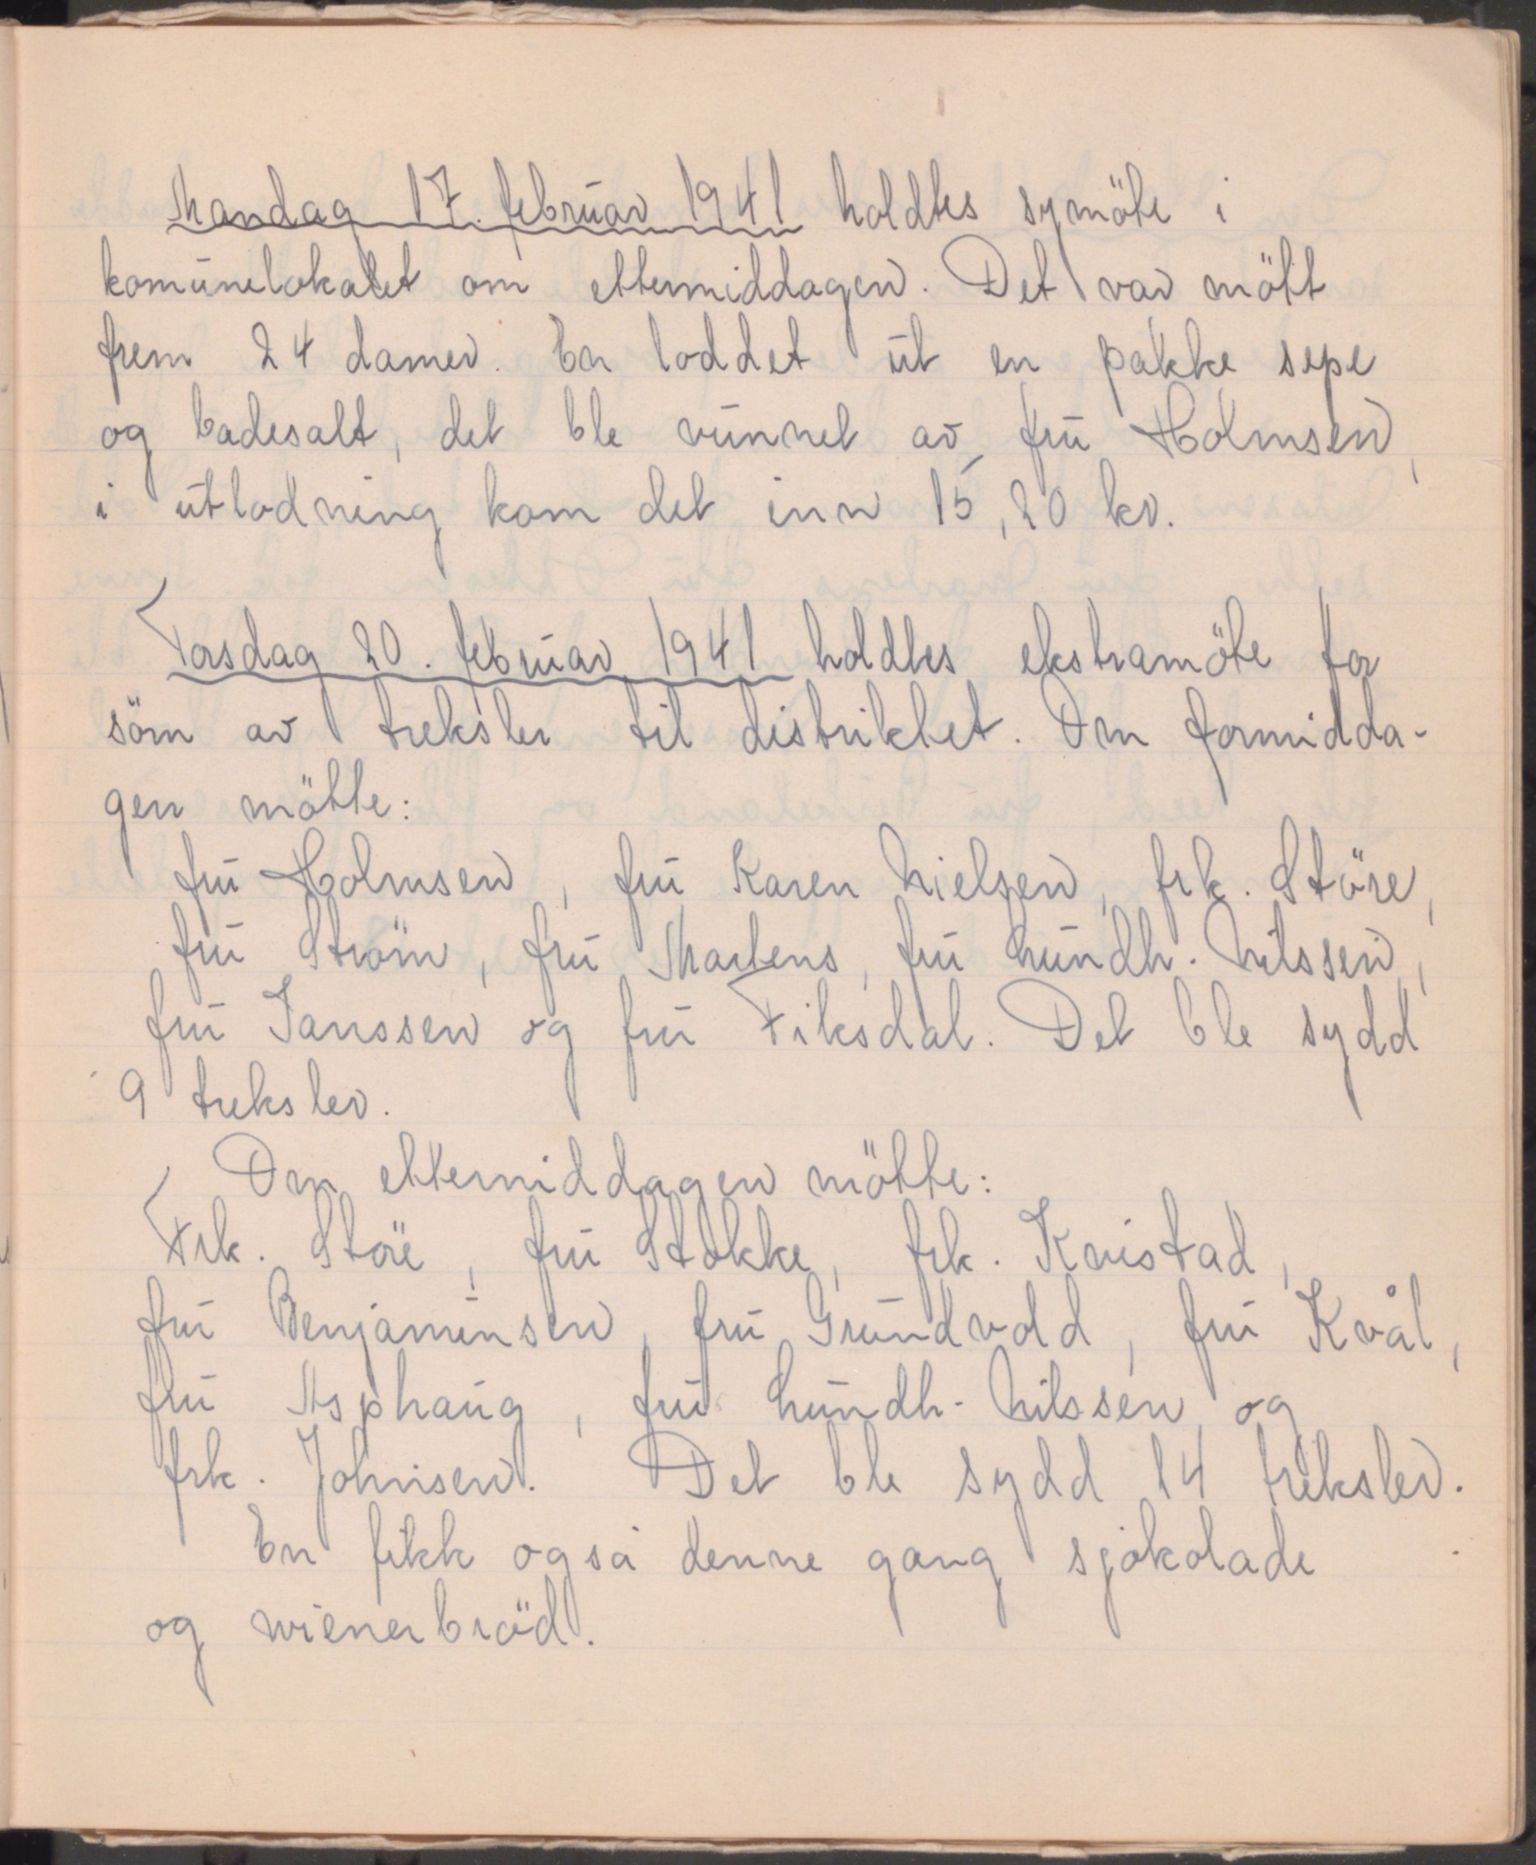 Mandag 17. februar 1941 holdtes symöte i
komunelokalet om ettermiddagen. Det var mött
frem 24 damer. En loddet ut en pakke sepe
og badesalt, det ble vunnet av fru Holmsen,
i utlodning kom det inn 15,20 kr.
Torsdag 20. februar 1941 holdtes ekstramöte for
söm av treksler til distriktet. Om formidda-
gen mötte:
fru Holmsen, fru Karen Nielsen, frk. Störe,
fru Ström, fru Martens, fru Lundh. Nilssen,
fru Janssen og fru Fiksdal. Det ble sydd
9 treksler.
Om ettermiddagen mötte:
Frk. Störe, fru Stokke, frk. Kvistad,
fru Benjaminsen, fru Grundvold, fru Kvål,
fru Asphaug, fru Lundh-Nilssen og
frk. Johnsen. Det ble sydd 14 treksler.
En fikk også denne gang sjokolade
og wienerbröd.